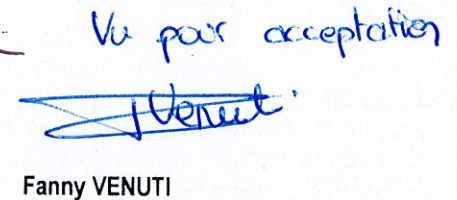 Vu pour acceptation
Venuti
Fanny VENUTI